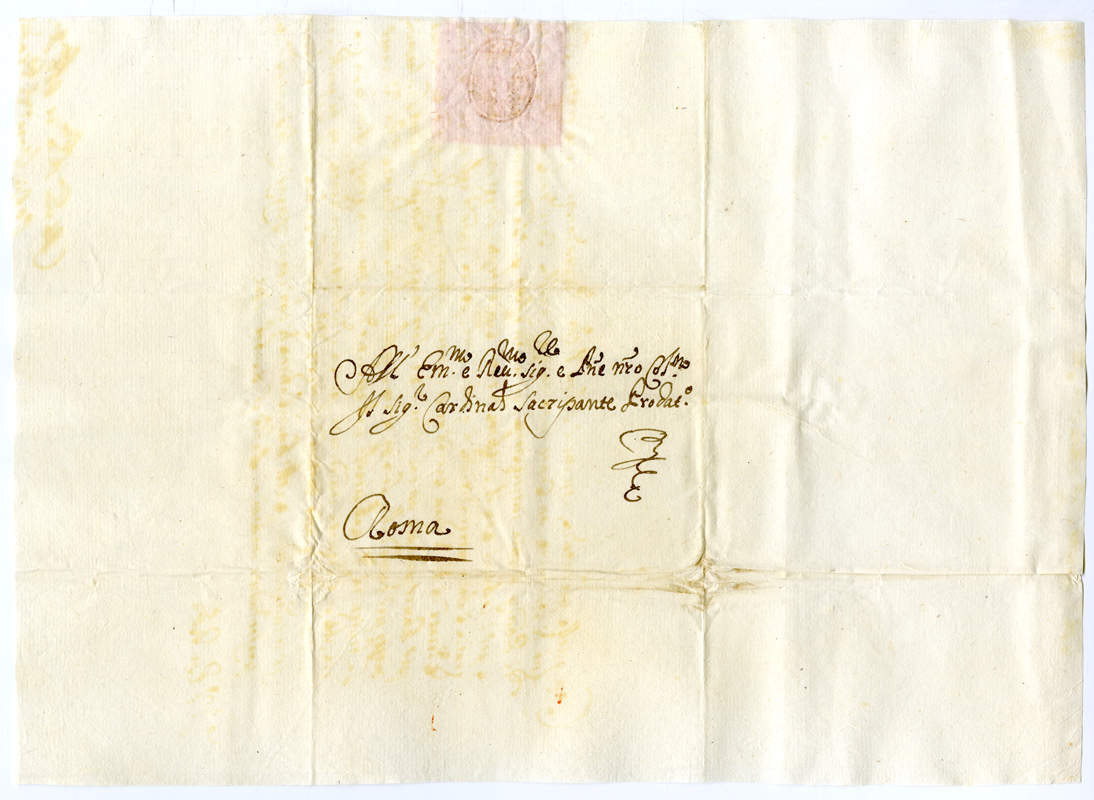 All' Em.mo e Rev.mo Sig.re e Pñe ñro Col.mo
Il Sig.r Cardinal Sacripante Prodat.o
Roma